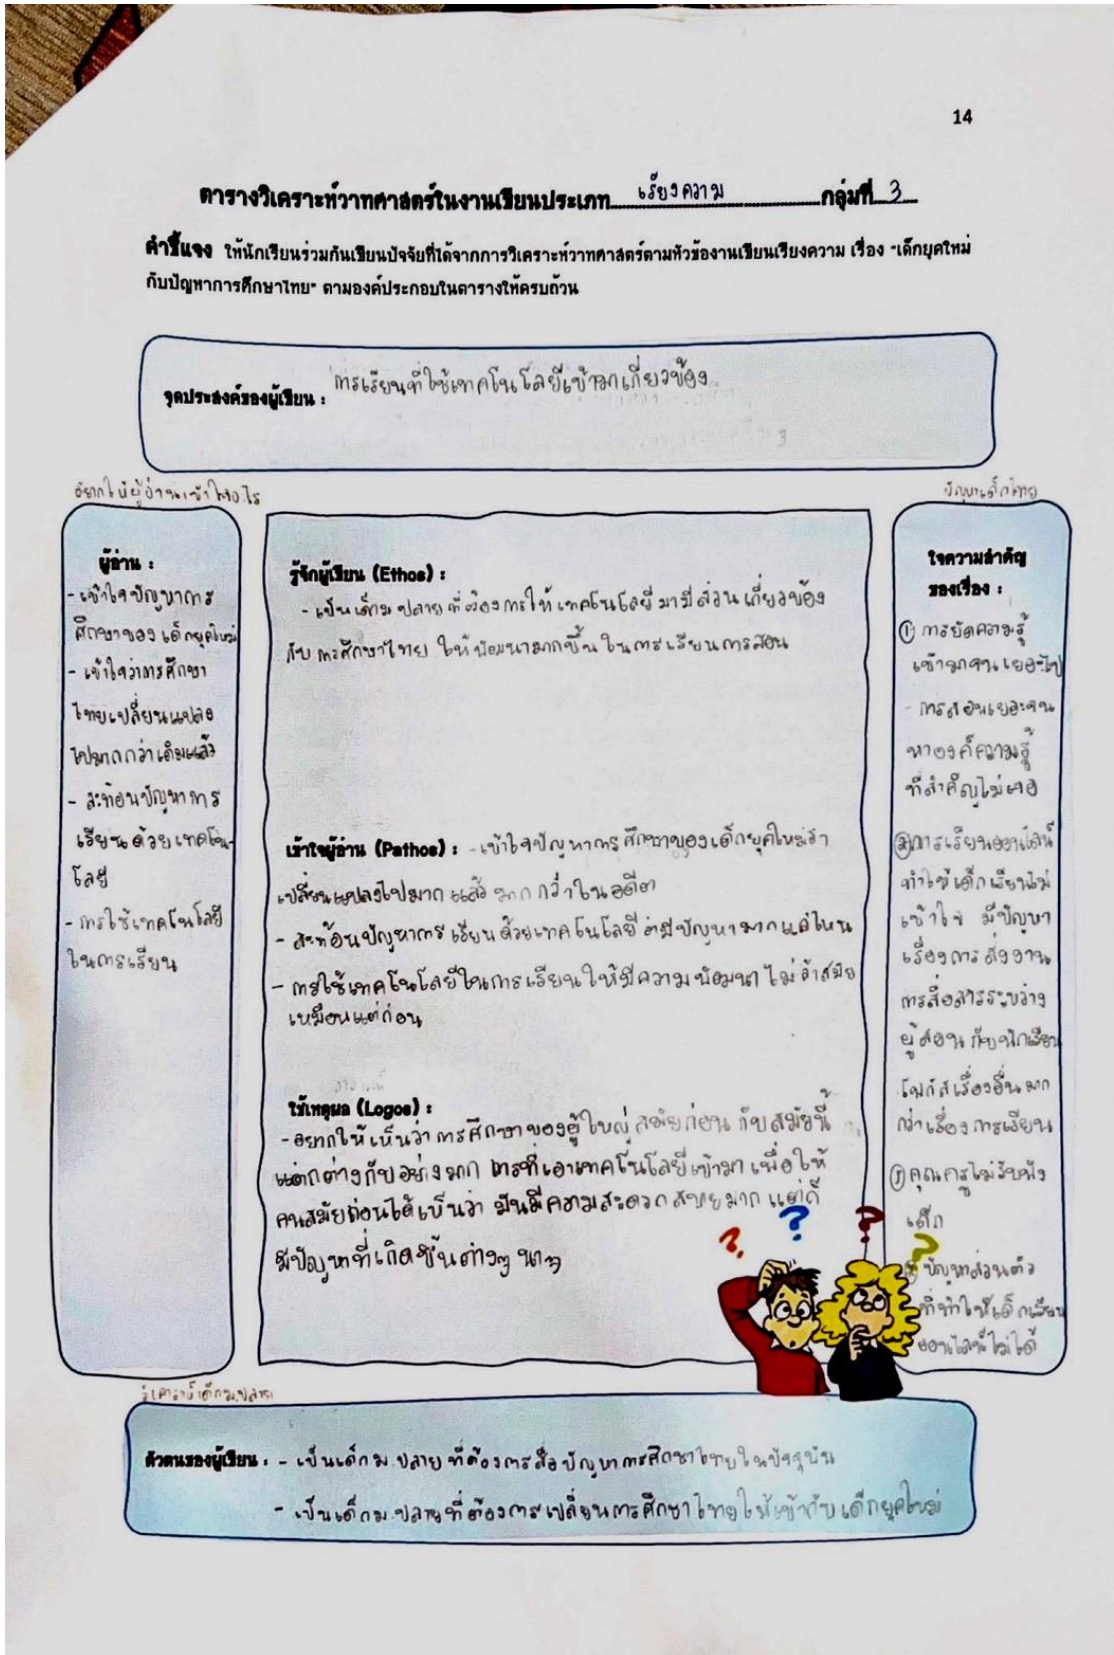 14
ตารางวิเคราะห์วาทศาสตร์ในงานเขียนประเภท เรียงความ กลุ่มที่ 3
คำชี้แจง ให้นักเรียนร่วมกันเขียนปัจจัยที่ได้จากการวิเคราะห์วาทศาสตร์ตามหัวข้องานเขียนเรียงความ เรื่อง "เด็กยุคใหม่
กับปัญหาการศึกษาไทย" ตามองค์ประกอบในตารางให้ครบถ้วน
จุดประสงค์ของผู้เขียน : การเรียนที่ใช้เทคโนโลยีเข้ามาเกี่ยวข้อง
อยากให้ผู้อ่านเข้าใจอะไร
ผู้อ่าน :
- เข้าใจปัญหาการ
ศึกษาของเด็กยุคใหม่
- เข้าใจว่าการศึกษา
ไทยเปลี่ยนแปลง
ไปมากกว่าเดิมแล้ว
- สะท้อนปัญหาการ
เรียนด้วยเทคโน-
โลยี
- การใช้เทคโนโลยี
ในการเรียน
รู้จักผู้เขียน (Ethos) :
- เป็นเด็กม.ปลายที่ต้องการให้เทคโนโลยีมามีส่วนเกี่ยวข้อง
กับการศึกษาไทย ให้พัฒนามากขึ้นในการเรียนการสอน
เข้าใจผู้อ่าน (Pathos) : - เข้าใจปัญหาการศึกษาของเด็กยุคใหม่ว่า
เปลี่ยนแปลงไปมากแล้ว มากกว่าในอดีต
- สะท้อนปัญหาการเรียนด้วยเทคโนโลยีว่ามีปัญหามากแค่ไหน
- การใช้เทคโนโลยีในการเรียนให้มีความพัฒนา ไม่ล้าสมัย
เหมือนแต่ก่อน
ใช้เหตุผล (Logos) :
- อยากให้เห็นว่า การศึกษาของผู้ใหญ่สมัยก่อน กับสมัยนี้
แตกต่างกันอย่างมาก การที่เอาเทคโนโลยีเข้ามา เพื่อให้
คนสมัยก่อนได้เห็นว่า มันมีความสะดวกสบายมาก แต่ก็
มีปัญหาที่เกิดขึ้นต่างๆ นาๆ
ปัญหาเด็กไทย
ใจความสำคัญ
ของเรื่อง :
① การยัดความรู้
เข้ามาจนเยอะไป
- การสอนเยอะจน
หาองค์ความรู้
ที่สำคัญไม่เจอ
② การเรียนออนไลน์
ทำให้เด็กเรียนไม่
เข้าใจ มีปัญหา
เรื่องการส่งงาน
การสื่อสารระหว่าง
ผู้สอนกับนักเรียน
โฟกัสเรื่องอื่นมาก
กว่าเรื่องการเรียน
③ คุณครูไม่รับฟัง
เด็ก
ปัญหาส่วนตัว
ที่ทำให้เด็กเรียน
ออนไลน์ไม่ได้
ตัวตนของผู้เขียน : - เป็นเด็กม.ปลายที่ต้องการสื่อปัญหาการศึกษาไทยในปัจจุบัน
- เป็นเด็กม.ปลายที่ต้องการเปลี่ยนการศึกษาไทยให้เข้ากับเด็กยุคใหม่